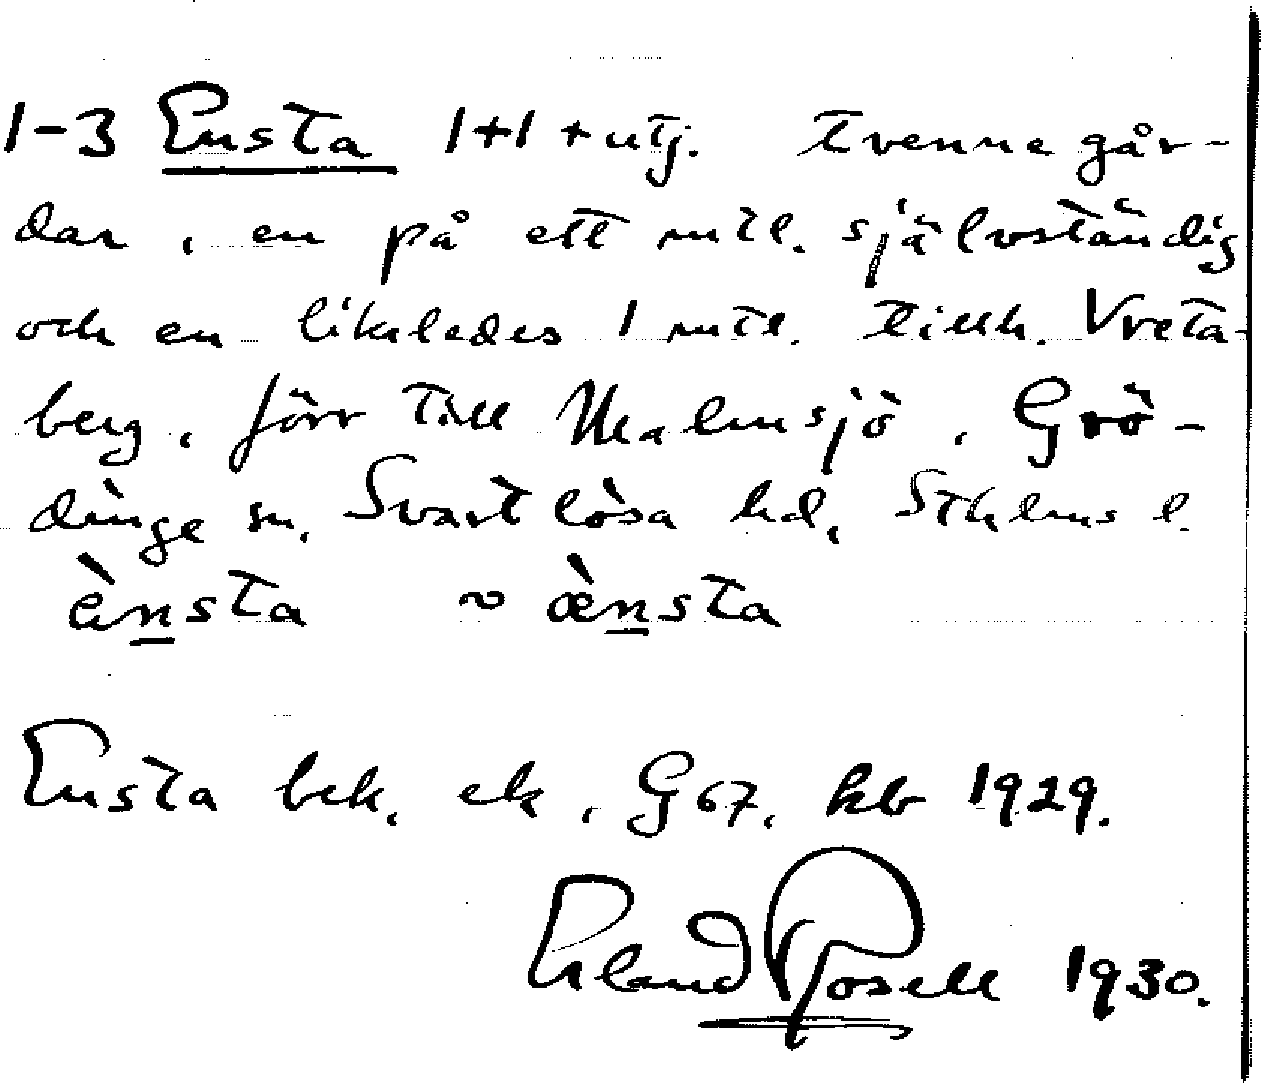 1-3 Ensta 1+1 + utj. Tvenne går-
dar, en på ett mtl. självständig
och en likaledes 1 mtl. tillh. Vreta-
berg, förr till Malmsjö, Grö-
dinge sn, Svartlösa hd, Sthlms l.
ènsta ~ æ̀nsta
Ensta bek. ek, G 67, kb 1929.
Erland Rosell 1930.